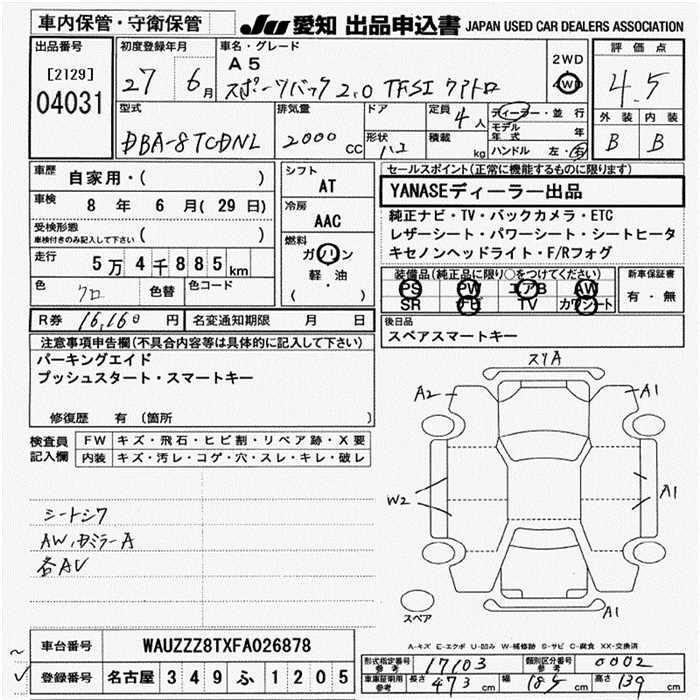 車内保管・守衛保管
JU 愛知 出品申込書 JAPAN USED CAR DEALERS ASSOCIATION
出品番号
[2129]
04031
初度登録年月
27 6月
車名・グレード
A5
スポーツバック 2.0 TFSI クアトロ
2WD
4WD
評価点
4.5
外装 内装
B B
型式
DBA-8TCDNL
排気量
2000 CC
ドア
形状
ハコ
定員 4人
積載 kg
ディーラー・並行
モデル年式 年
ハンドル 左・右
車歴 自家用・( )
車検 8 年 6 月(29 日)
受検形態
車検付きのみ記入して下さい ( )
走行 5万4千885km
色 クロ
色替
色コード
シフト
AT
冷房
AAC
燃料
ガソリン
軽・油
( )
R券 16,160 円
名変通知期限 月 日
セールスポイント(正常に機能するものに限り)
YANASEディーラー出品
純正ナビ・TV・バックカメラ・ETC
レザーシート・パワーシート・シートヒータ
キセノンヘッドライト・F/Rフォグ
装備品(純正品に限り○をつけてください)
PS PW エアB AW
SR ナビ TV カワシート
新車保証書
有・無
後日品
スペアスマートキー
注意事項申告欄(不具合内容等は具体的に記入して下さい)
パーキングエイド
プッシュスタート・スマートキー
修復歴 有(箇所 )
検査員記入欄
FW キズ・飛石・ヒビ割・リペア跡・X要
内装 キズ・汚レ・コゲ・穴・スレ・キレ・破レ
シートシワ
AW、ドミラーA
各AV
スリA
A2
A1
W2
A1
A1
スペア
A-キズ E-エクボ U-凹み W-補修跡 S-サビ C-腐食 XX-交換済
車台番号 WAUZZZ8TXFA026878
登録番号 名古屋 349 ふ 1205
形式指定番号 参考 17103
類別区分番号 参考 0002
車庫証明用 参考 長さ 473 cm 幅 185 cm 高さ 139 cm